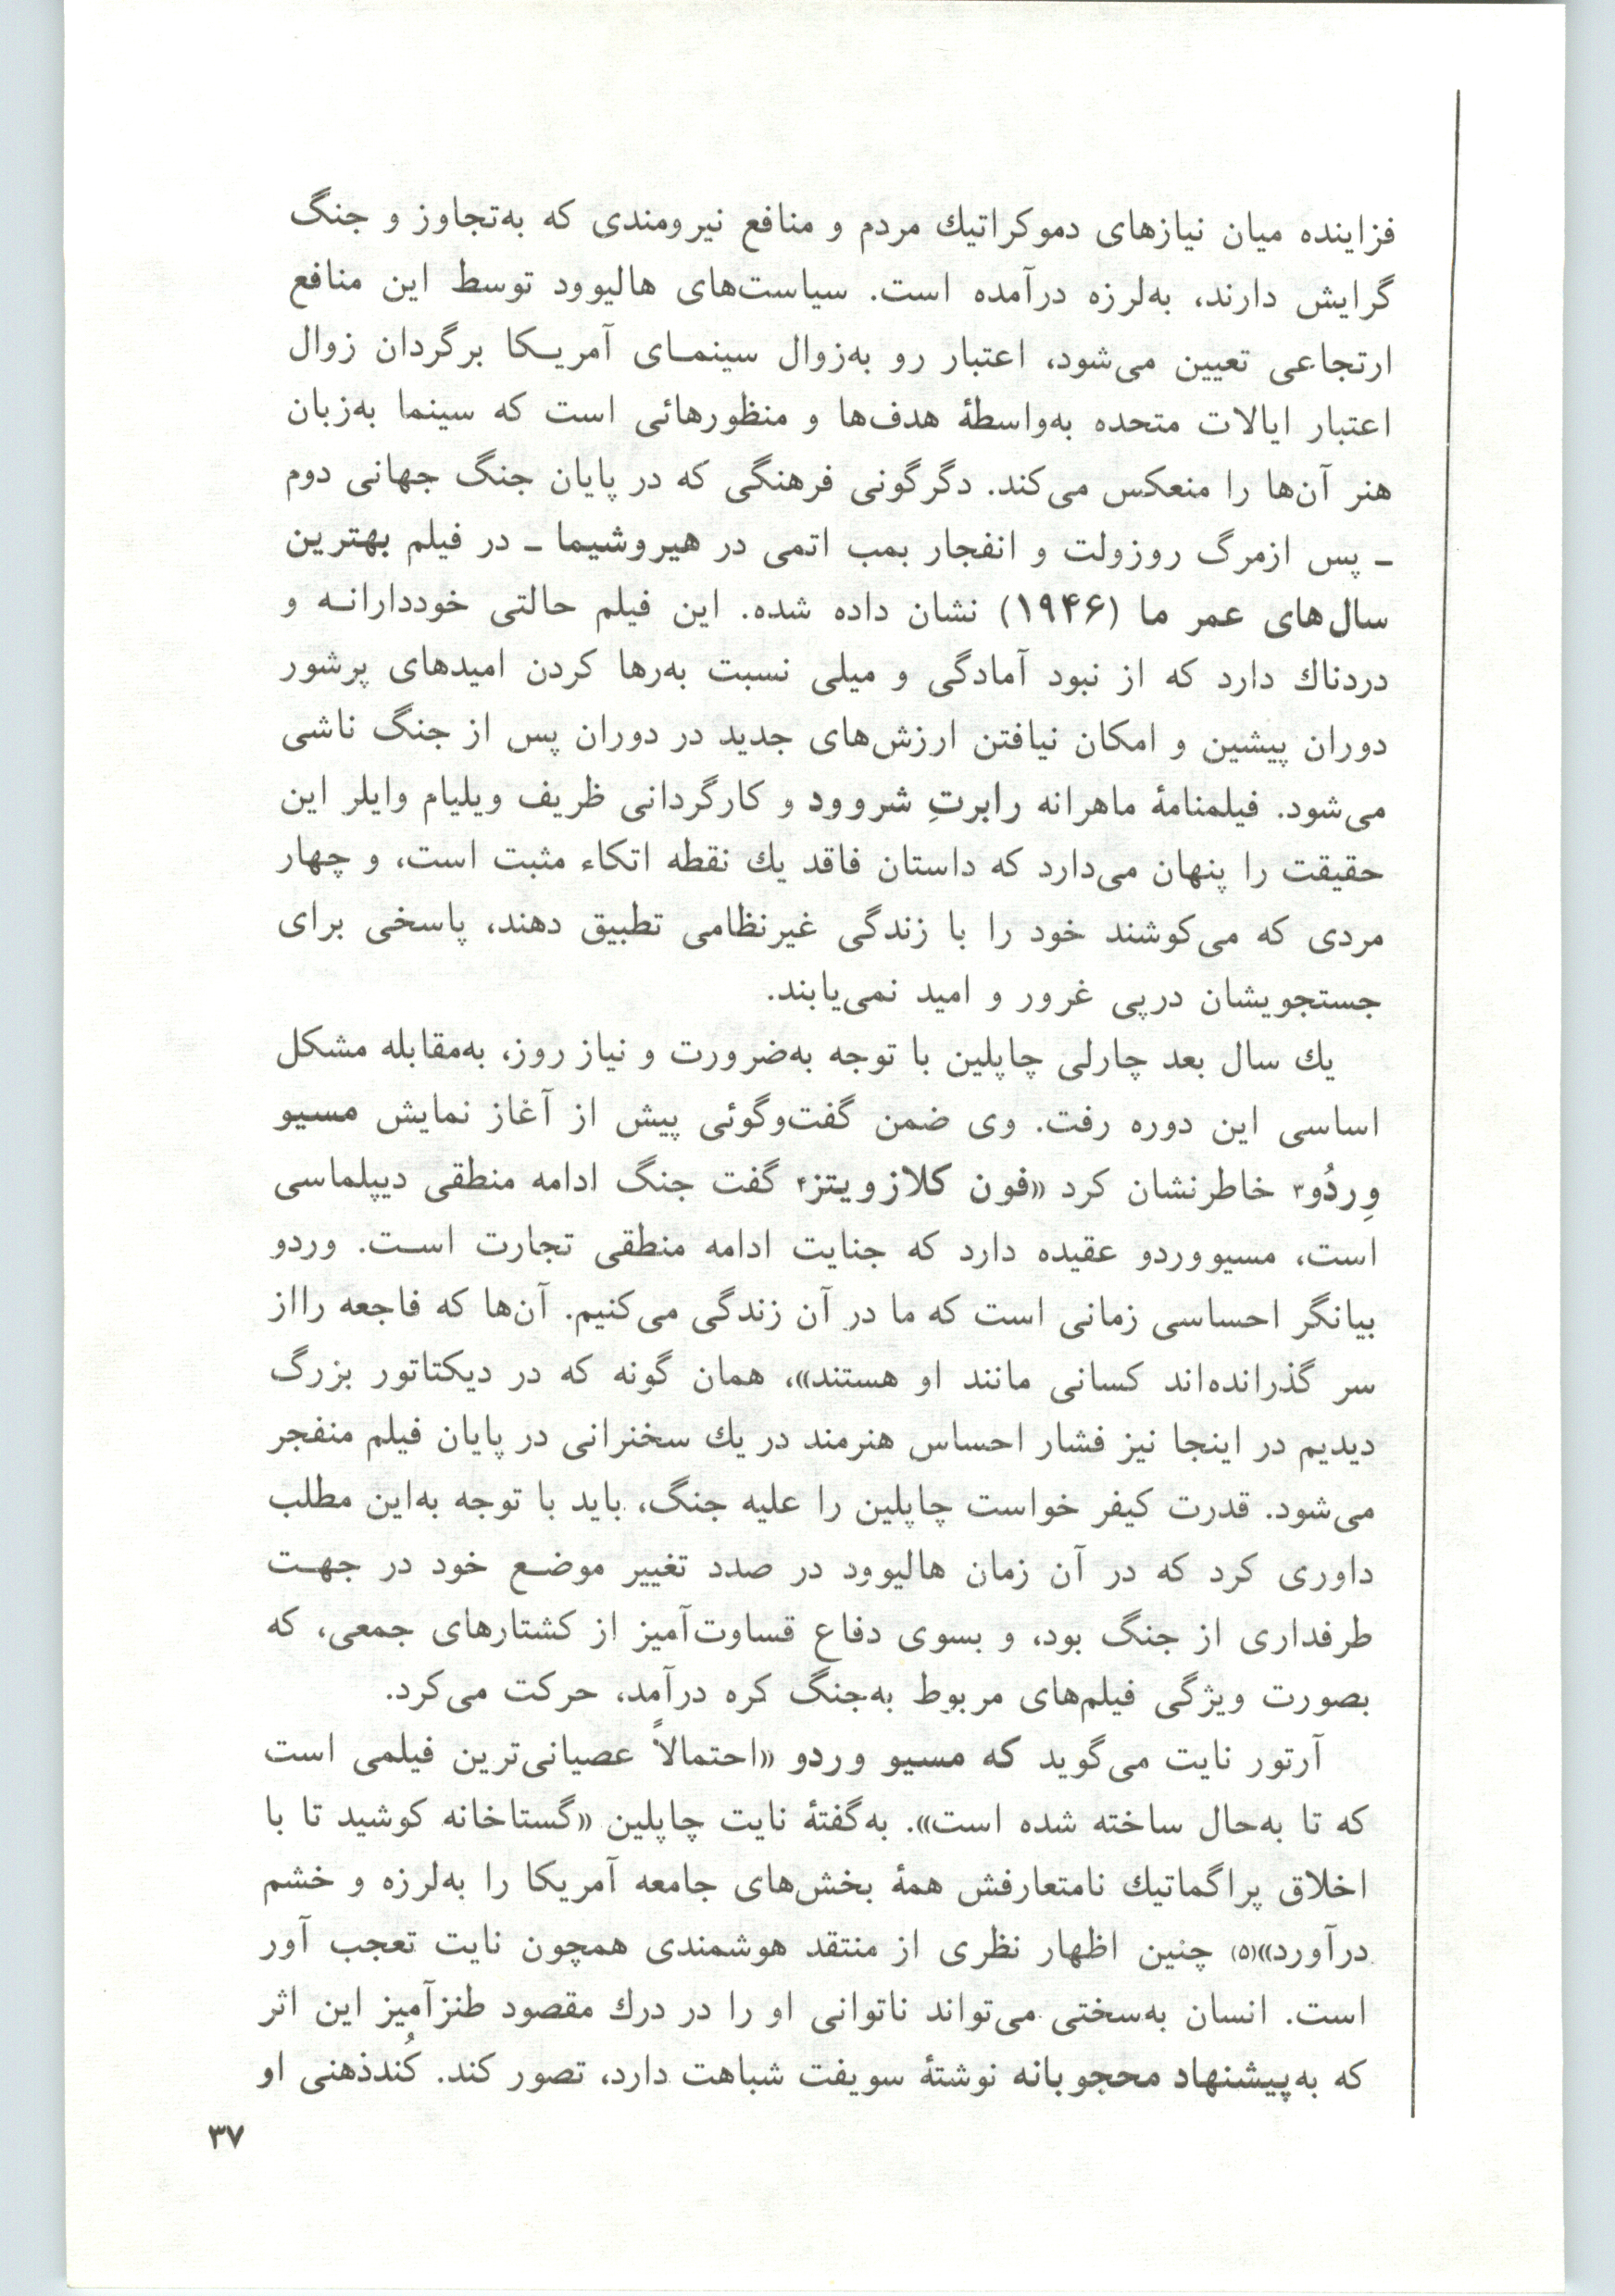 فزاینده میان نیازهای دموکراتیك مردم و منافع نیرومندی که به‌تجاوز و جنگ
گرایش دارند، به‌لرزه درآمده است. سیاست‌های هالیوود توسط این منافع
ارتجاعی تعیین می‌شود، اعتبار رو به‌زوال سینمـای آمریـکا برگردان زوال
اعتبار ایالات متحده به‌واسطهٔ هدف‌ها و منظورهائی است که سینما به‌زبان
هنر آن‌ها را منعکس می‌کند. دگرگونی فرهنگی که در پایان جنگ جهانی دوم
ـ پس ازمرگ روزولت و انفجار بمب اتمی در هیروشیما ـ در فیلم بهترین
سال‌های عمر ما (۱۹۴۶) نشان داده شده. این فیلم حالتی خوددارانـه و
دردناك دارد که از نبود آمادگی و میلی نسبت به‌رها کردن امیدهای پرشور
دوران پیشین و امکان نیافتن ارزش‌های جدید در دوران پس از جنگ ناشی
می‌شود. فیلمنامهٔ ماهرانه رابرتِ شروود و کارگردانی ظریف ویلیام وایلر این
حقیقت را پنهان می‌دارد که داستان فاقد یك نقطه اتکاء مثبت است، و چهار
مردی که می‌کوشند خود را با زندگی غیرنظامی تطبیق دهند، پاسخی برای
جستجویشان درپی غرور و امید نمی‌یابند.
یك سال بعد چارلی چاپلین با توجه به‌ضرورت و نیاز روز، به‌مقابله مشکل
اساسی این دوره رفت. وی ضمن گفت‌وگوئی پیش از آغاز نمایش مسیو
وِردُو۳ خاطرنشان کرد «فون کلازویتز۴ گفت جنگ ادامه منطقی دیپلماسی
است، مسیووردو عقیده دارد که جنایت ادامه منطقی تجارت اسـت. وردو
بیانگر احساسی زمانی است که ما در آن زندگی می‌کنیم. آن‌ها که فاجعه رااز
سر گذرانده‌اند کسانی مانند او هستند»، همان گونه که در دیکتاتور بزرگ
دیدیم در اینجا نیز فشار احساس هنرمند در یك سخنرانی در پایان فیلم منفجر
می‌شود. قدرت کیفر خواست چاپلین را علیه جنگ، باید با توجه به‌این مطلب
داوری کرد که در آن زمان هالیوود در صدد تغییر موضـع خود در جهـت
طرفداری از جنگ بود، و بسوی دفاع قساوت‌آمیز از کشتارهای جمعی، که
بصورت ویژگی فیلم‌های مربوط به‌جنگ کره درآمد، حرکت می‌کرد.
آرتور نایت می‌گوید که مسیو وردو «احتمالاً عصیانی‌ترین فیلمی است
که تا به‌حال ساخته شده است». به‌گفتهٔ نایت چاپلین «گستاخانه کوشید تا با
اخلاق پراگماتیك نامتعارفش همهٔ بخش‌های جامعه آمریکا را به‌لرزه و خشم
درآورد»(۵) چنین اظهار نظری از منتقد هوشمندی همچون نایت تعجب آور
است. انسان به‌سختی می‌تواند ناتوانی او را در درك مقصود طنزآمیز این اثر
که به‌پیشنهاد محجوبانه نوشتهٔ سویفت شباهت دارد، تصور کند. کُندذهنی او
۳۷